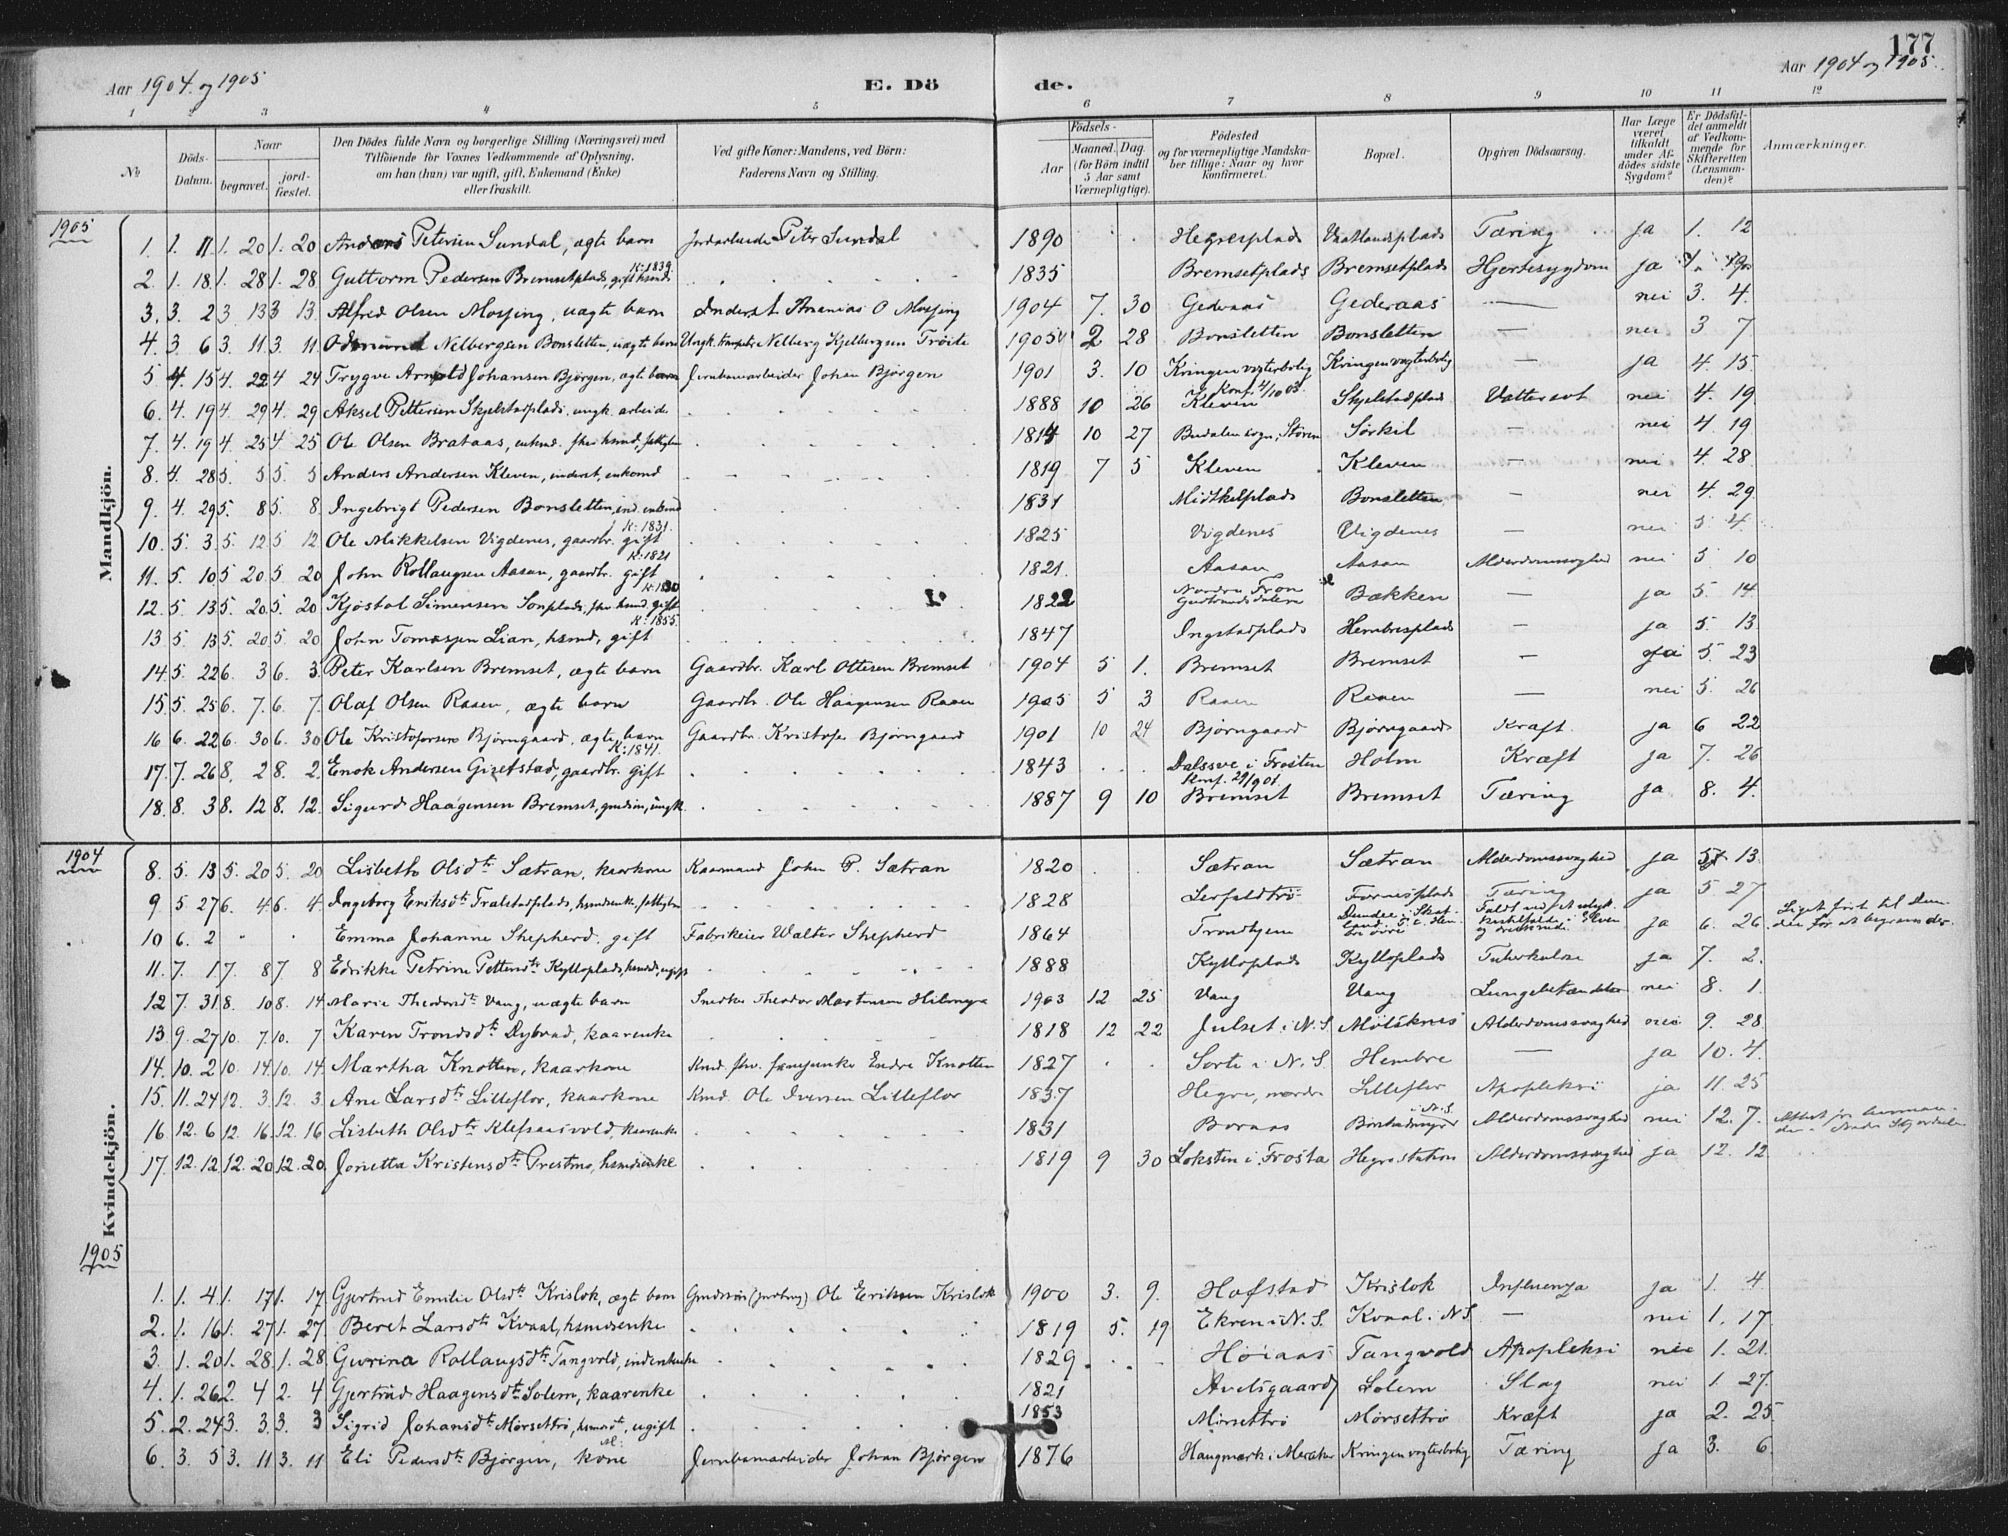 177
Aar 1904 og 1905
E. Dö de.
Aar 1904 og 1905.
1 2 3 4 5 6 7 8 9 10 11 12
No
Döds-Datum.
Naar
begravet.
jord-fæstet.
Den Dödes fulde Navn og borgerlige Stilling (Næringsvei) med
Tilföiende for Voxnes Vedkommende af Oplysning,
om han (hun) var ugift, gift, Enkemand (Enke)
eller fraskilt.
Ved gifte Koner: Mandens, ved Börn:
Faderens Navn og Stilling.
Födsels-
Aar
Maaned. Dag.
(for Börn indtil
5 Aar samt
Værnepligtige).
Födested
og for værnepligtige Mandska-
ber tillige: Naar og hvor
konfirmeret.
Bopæl.
Opgiven Dödsaarsag.
Har Læge
været
tilkaldt
under Af-
dödes sidste
Sygdom?
Er Dödsfal-
det anmeldt
af Vedkom-
mende for
Skifteretten
(Lensman-
den)?
Anmærkninger.
Mandkjön.
1905
1. 1. 11 1. 20 1. 20 Anders Petersen Sundal, ægte barn Jordarbeider Peter Sundal 1890 Hegresplads Vaatlandsplads Tæring ja 1. 12
2. 1. 18 1. 28 1. 28 Guttorm Pedersen Bremsetplads, gift husmd. 1835 Bremsetplads Bremsetplads Hjertesygdom ja
3. 3. 2 3. 13 3 13. Alfred Olsen Mossing, uægte barn Inderst Ananias O Mossing 1904 7. 30 Gederaas Gederaas — nei 3. 4.
4. 3 6 3. 11 3. 11 Odmund Nelbergsen Bonsletten, uægte barn Ungk. Nelberg Kjelbergsen Tröite 1905 2 28 Bonsletten Bonsletten — nei 3 7
5 4. 15 4. 22 4 24 Trygve Arnold Johansen Björgen, ægte barn Jernbanearbeider Johan Björgen 1901 3. 10 Kringen vogterbolig Kringen vogterbolig — ja 4. 15.
6. 4. 19 4. 29 4. 29 Aksel Pettersen Skjelstadplads, ungk. arbeider 1888 10 26 Konf. 4/10 03. Kleven Skjelstadplads Vattersot nei 4. 19
7. 4. 19 4. 25 4. 25 Ole Olsen Brataas, enkmd. 1814 10 27 Budalen sogn, Stören Sörkil — nei 4. 19
8. 4. 28 5. 5 5. 5 Anders Andersen Kleven, inderst, enkemd 1819 7 5 Kleven Kleven — nei 4. 28.
9. 4. 29 5. 8 5. 8 Ingebrigt Pedersen Bonsletten, ind. enkemd 1831 Midtkilplads Bonsletten — nei 4. 29
10. 5. 3 5. 12 5 12 Ole Mikkelsen Vigdenes, gaardbr. gift 1825 Vigdenes Vigdenes — nei 5 4
11. 5. 10 5 20 5. 20 John Rollaugsen Aasan, gaardbr. gift 1821. Aasan Aasan Alderdomssvaghed nei 5 10
12. 5. 13 5. 20 5. 20 Kjöstol Simensen Sonplads, gift 1822 Nordre Fron Gudbrandsdalen Bækken — ja 5. 14
13 5. 13 5. 20 5. 20 John Tomassen Lian, hsmd, gift 1847 Ingstadplads Hembresplads — ja 5. 13
14. 5. 22 6. 3 6. 3 Peter Karlsen Bremset, ægte barn Gaardbr. Karl Ottesen Bremset 1904 5 1. Bremset Bremset — ja 5. 23
15. 5. 25 6. 7. 6. 7. Olaf Olsen Raaen, ægte barn Gaardbr. Ole Haagensen Raaen 1905 5 3 Raaen Raaen — nei 5. 26
16 6. 22 6. 30 6. 30 Ole Kristofersen Björngaard, ægte barn Gaardbr. Kristofer Björngaard 1901 10 24 Björngaard Björngaard Kræft ja 6 22
17. 7. 26 8. 2 8. 2. Enok Andersen Gizetstad, gaardbr. gift 1843 Dalssve i Frosten Holm Kræft ja 7. 26
18. 8. 3 8. 12 8. 12. Sigurd Haagensen Bremset, gaardsön, ungk. 1887 9 10 Konf. 29/9 01 Bremset Bremset Tæring ja 8. 4.
Kvindekjön.
1904
8. 5. 13 5. 20 5. 20 Lisbeth Olsdtr Sætran, kaarkone Kaarmand John P. Sætran 1820 Sætran Sætran Alderdomssvaghed ja 5 13
9 5 27 6. 4 6. 4. Ingeborg Eriksdtr Tralstadplads, hsmdsenke, fattiglem 1828 Lerfaldtrö Fornesplads Tæring ja 5 27
10 6. 2 Emma Johanne Shepherd, gift Fabrikeier Walter Shepherd 1864 Trondhjem Dundee i Skotland ja 6. 26 Liget fört til Dundee for at begraves der.
11. 7. 1 7. 8 7. 8 Edrikke Petrine Pettersdtr Kylloplads, ugift 1888 Kylloplads Kylloplads Tuberkulose ja 7. 2.
12 7. 31 8. 10 8. 14 Marie Theodorsdtr Vang, uægte barn Snedker Theodor Martinsen Hilmoen 1903 12 25 Vang Vang Lungebetændelse nei 8. 1.
13 9. 27 10. 7. 10. 7 Karen Trondsdtr Dybvad, kaarenke 1818 12 22 Julset i N. S. Mölsknes Alderdomssvaghed nei 9. 28
14. 10. 2 10. 14 10. 14 Martha Knotten, kaarkone Endre Knotten 1827 Sorte i N. S. Hembre — ja 10. 4.
15. 11. 24 12. 3. 12. 3 Ane Larsdtr Lilleflor, kaarkone Kmd. Ole Iversen Lilleflor 1837 Hegre, nordre Lilleflor Apopleksi ja 11. 25
16. 12. 6 12. 16. 12. 16 Lisbeth Olsdtr Klefsaasvold, kaarenke 1831 Boraas i N. S. Alderdomssvaghed nei 12. 7.
17. 12. 12 12. 20 12. 20. Jonetta Kristensdtr Prestmo, hsmdsenke 1819 9 30 Loksten i Frosta Hegre station Alderdomssvaghed ja 12. 12
1905
1. 1. 4 1. 17 1. 17 Gjertrud Emilie Olsdtr Krislok, ægte barn Gaardssön Ole Eriksen Krislok 1900 3. 9. Hofstad Krislok Influenza ja 1. 4
2. 1. 16 1. 27 1. 27. Beret Larsdtr Kvaal, hsmdsenke 1819 5. 19 Ekren i N. S. Kvaal i N. S. — nei 1. 17.
3. 1. 20 1. 28 1. 28. Gurina Rollaugsdtr Tangvold, inderstenke 1829 Höiaas Tangvold Apopleksi nei 1. 21.
4. 1. 26 2. 4 2. 4 Gjertrud Haagensdtr Solem, kaarenke 1821 Avelsgaard Solem Slag nei 1. 27.
5. 2. 24 3. 3. 3. 3 Sigrid Johansdtr Mörsettrö, ugift 1853 Mörsettrö Mörsettrö Kræft ja 2. 25
6. 3. 5 3. 11 3. 11 Eli Pedersdtr Björgen, kone Jernbanearbeider Johan Björgen 1876 Haugmark i Meraker Kringen vogterbolig Tæring ja 3. 6.